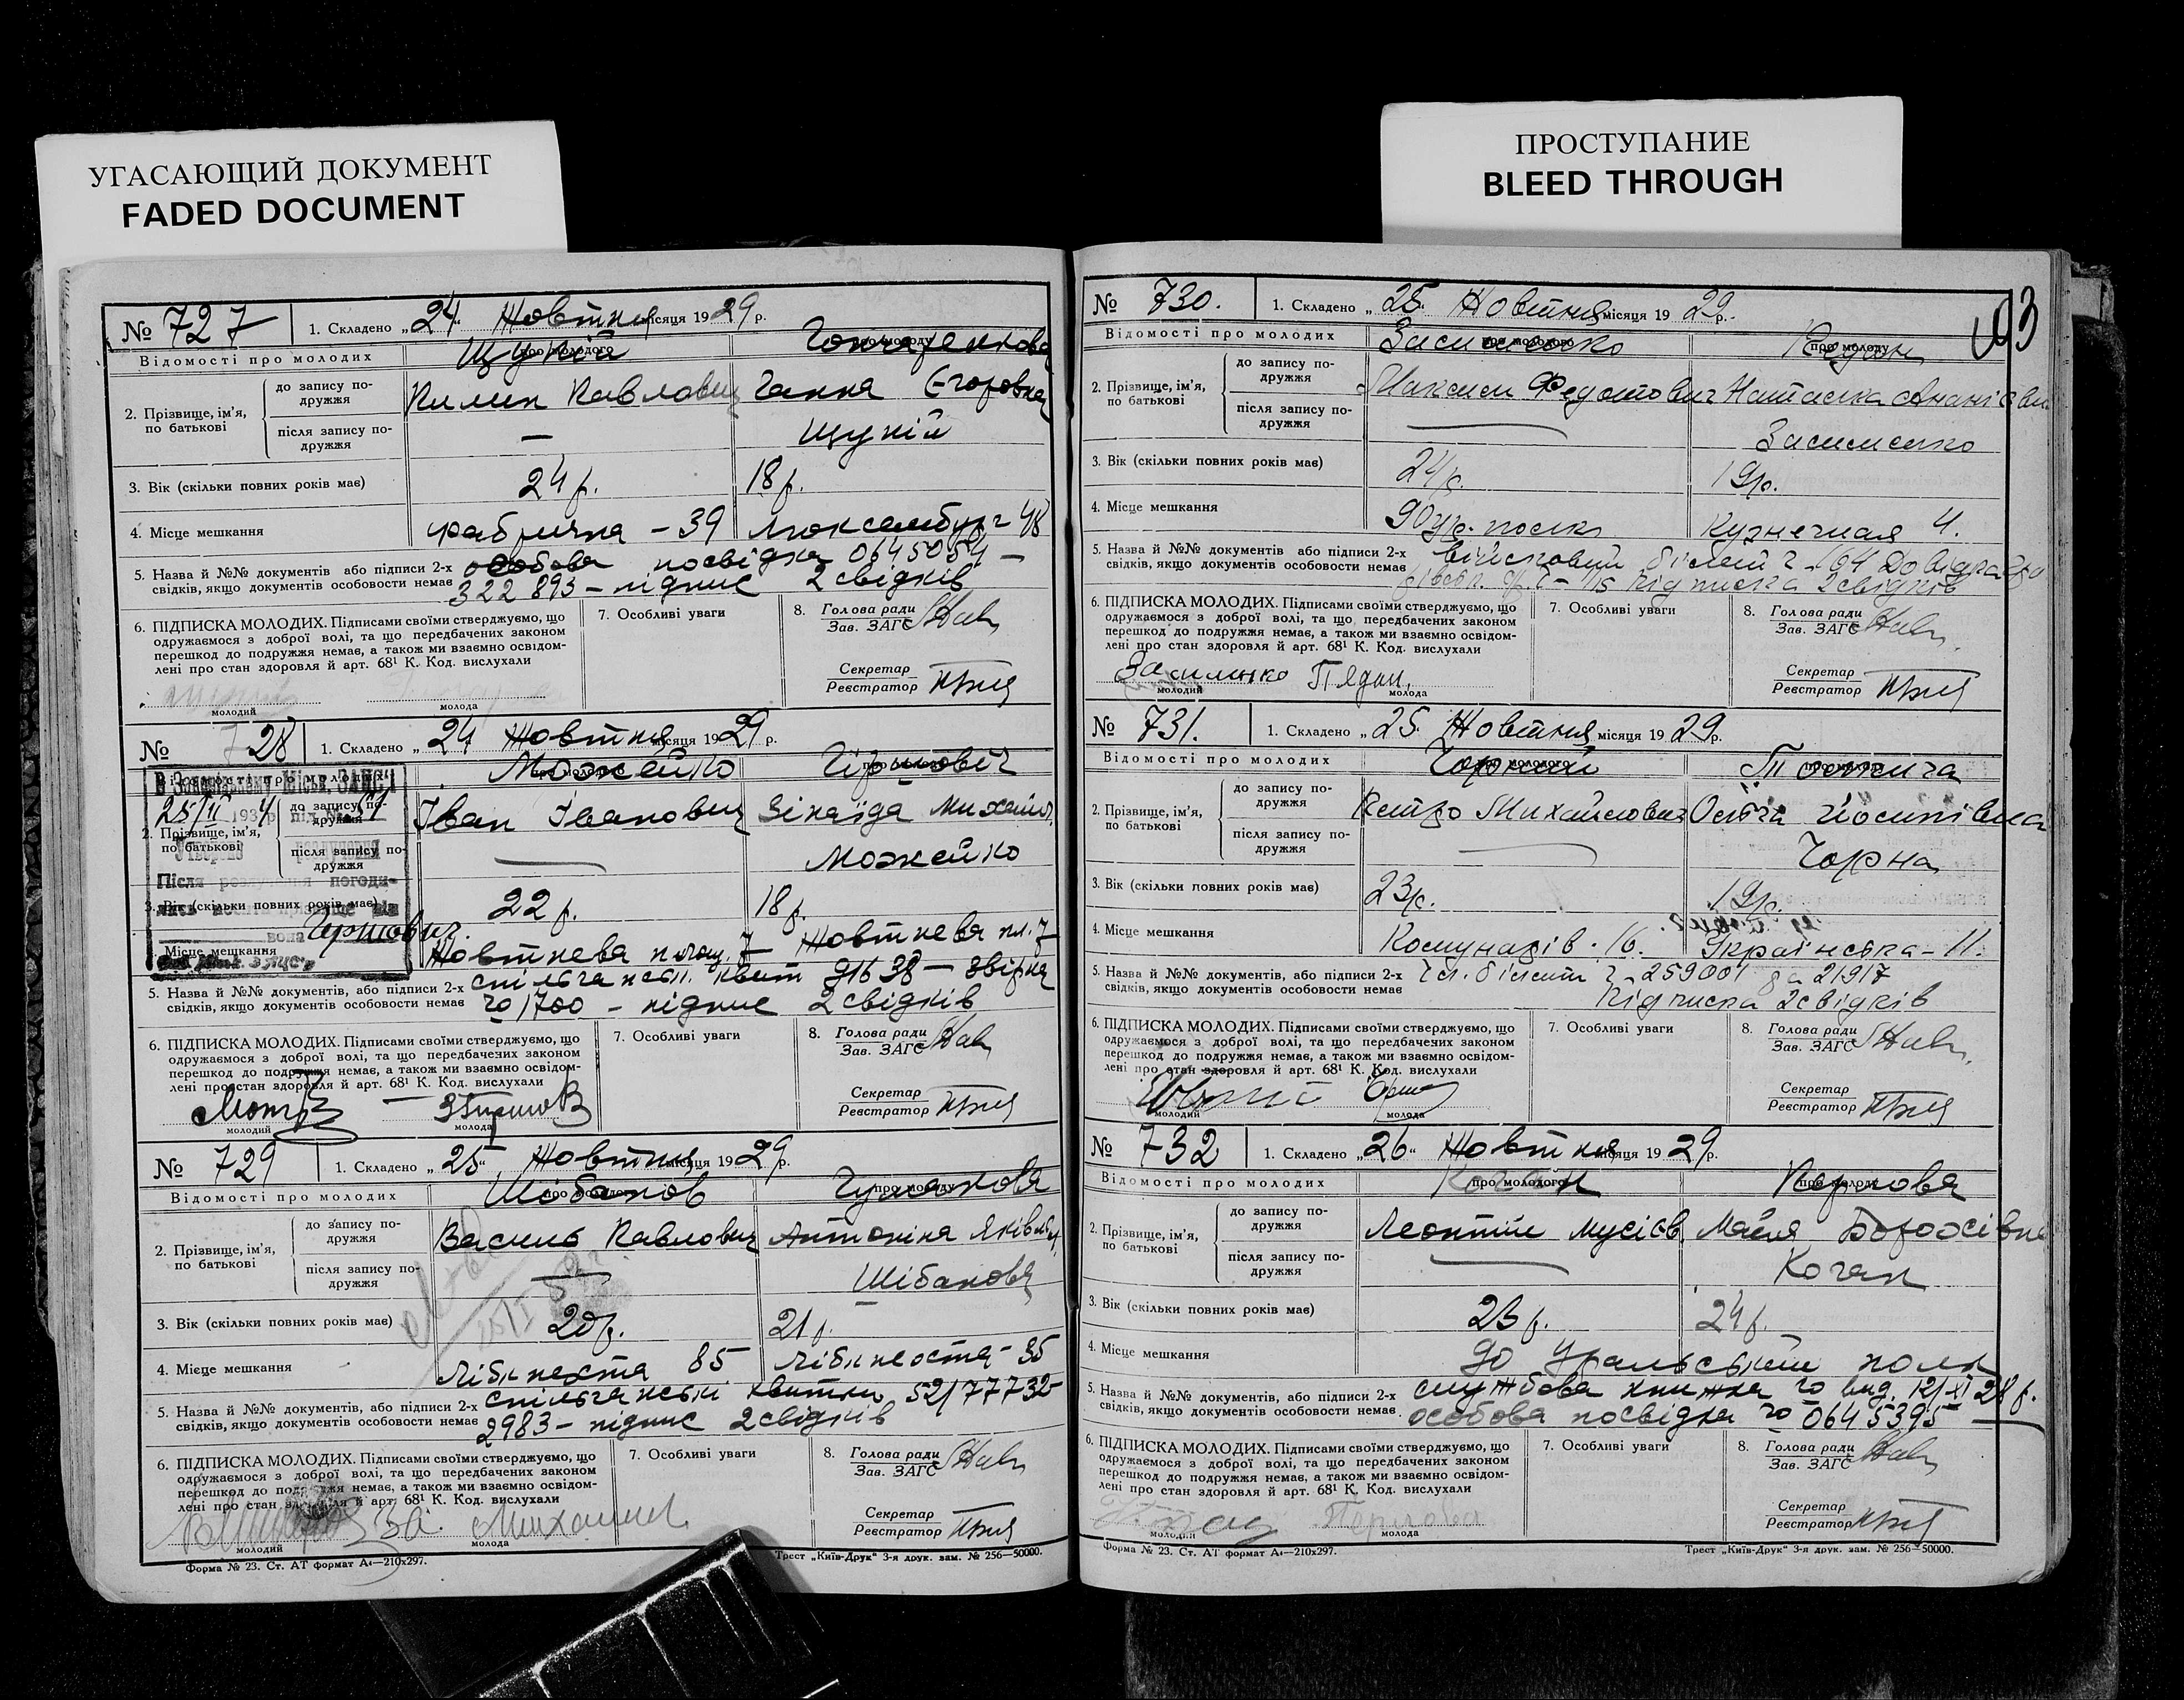 УГАСАЮЩИЙ ДОКУМЕНТ
FADED DOCUMENT
ПРОСТУПАНИЕ
BLEED THROUGH
№ 727 1. Складено „24“ Жовтня місяця 1929 р.
Відомості про молодих про молодого про молоду
Щупій Гончаренкова
2. Прізвище, ім'я, по батькові
до запису подружжя Пилип Павлович Ганна Єгоровна
після запису подружжя — Щупій
3. Вік (скільки повних років має) 24 р. 18 р.
4. Місце мешкання фабрична - 39 Люксембург 48
5. Назва й №№ документів або підписи 2-х особова посвідка 0645054 —
свідків, якщо документів особовости немає 322893 - підпис 2 свідків
6. ПІДПИСКА МОЛОДИХ. Підписами своїми стверджуємо, що
одружаємося з доброї волі, та що передбачених законом
перешкод до подружжя немає, а також ми взаємно освідом-
лені про стан здоровля й арт. 68¹ К. Код. вислухали
молодий молода
7. Особливі уваги
8. Голова ради
Зав. ЗАГС
Секретар
Реєстратор
№ 728 1. Складено „24 Жовтня місяця 1929 р.
Відомості про молодих
Можейко Гіршович
2. Прізвище, ім'я, по батькові
до запису подружжя Іван Іванович Зінаїда Михайл.
після запису подружжя — Можейко
3. Вік (скільки повних років має) 22 р. 18 р.
Гершович.
Місце мешкання Жовтнева площ. 7 Жовтнева пл. 7
5. Назва й №№ документів, або підписи 2-х спільчанськ. квит 91638 —
свідків, якщо документів особовости немає 1700 - підпис 2 свідків
6. ПІДПИСКА МОЛОДИХ. Підписами своїми стверджуємо, що
одружаємося з доброї волі, та що передбачених законом
перешкод до подружжя немає, а також ми взаємно освідом-
лені про стан здоровля й арт. 68¹ К. Код. вислухали
молодий молода
7. Особливі уваги
8. Голова ради
Зав. ЗАГС
Секретар
Реєстратор
№ 729 1. Складено „25“ Жовтня місяця 1929 р.
Відомості про молодих про молодого про молоду
Шібанов
2. Прізвище, ім'я, по батькові
до запису подружжя Василь Павлович Антоніна Яківна
після запису подружжя — Шібанова
3. Вік (скільки повних років має) 20 р. 21 р.
4. Місце мешкання Лібкнехта 85 Лібкнехта - 85
5. Назва й №№ документів, або підписи 2-х спільчанські квитки 52/77732
свідків, якщо документів особовости немає 2983 - підпис 2 свідків
6. ПІДПИСКА МОЛОДИХ. Підписами своїми стверджуємо, що
одружаємося з доброї волі, та що передбачених законом
перешкод до подружжя немає, а також ми взаємно освідом-
лені про стан здоровля й арт. 68¹ К. Код. вислухали
молодий молода
7. Особливі уваги
8. Голова ради
Зав. ЗАГС
Секретар
Реєстратор
Форма № 23. Ст. АТ формат А₄—210х297. Трест „Київ-Друк“ 3-я друк. зам. № 256—50000.
№ 730. 1. Складено „25“ Жовтня місяця 1929 р.
Відомості про молодих про молодого про молоду
Засименко Педан
2. Прізвище, ім'я, по батькові
до запису подружжя Максим Федотович Наталка
після запису подружжя — Засименко
3. Вік (скільки повних років має) 24 р. 19 р.
4. Місце мешкання 90 Ур. полк Кузнечная 4.
5. Назва й №№ документів або підписи 2-х військовий білет
свідків, якщо документів особовости немає підписка 2 свідків
6. ПІДПИСКА МОЛОДИХ. Підписами своїми стверджуємо, що
одружаємося з доброї волі, та що передбачених законом
перешкод до подружжя немає, а також ми взаємно освідом-
лені про стан здоровля й арт. 68¹ К. Код. вислухали
Засименко Пядан.
молодий молода
7. Особливі уваги
8. Голова ради
Зав. ЗАГС
Секретар
Реєстратор
№ 731. 1. Складено „25 Жовтня місяця 1929 р.
Відомості про молодих про молодого про молоду
Чорний
2. Прізвище, ім'я, по батькові
до запису подружжя Петро Михайлович Ольга Йосипівна
після запису подружжя — Чорна
3. Вік (скільки повних років має) 23 р. 19 р.
4. Місце мешкання Комунарів. 16. Українська - 11.
5. Назва й №№ документів, або підписи 2-х чл. білети 259001 21917
свідків, якщо документів особовости немає Підписка 2 свідків
6. ПІДПИСКА МОЛОДИХ. Підписами своїми стверджуємо, що
одружаємося з доброї волі, та що передбачених законом
перешкод до подружжя немає, а також ми взаємно освідом-
лені про стан здоровля й арт. 68¹ К. Код. вислухали
молодий молода
7. Особливі уваги
8. Голова ради
Зав. ЗАГС
Секретар
Реєстратор
№ 732 1. Складено „26“ Жовтня місяця 1929 р.
Відомості про молодих про молодого про молоду
Коган Перлова
2. Прізвище, ім'я, по батькові
до запису подружжя Леонтій Мусієв.
після запису подружжя — Коган
3. Вік (скільки повних років має) 23 р. 24 р.
4. Місце мешкання 90 Уральський полк
5. Назва й №№ документів, або підписи 2-х службова книжка вид. 12/XI 28 р.
свідків, якщо документів особовости немає особова посвідка 0645395
6. ПІДПИСКА МОЛОДИХ. Підписами своїми стверджуємо, що
одружаємося з доброї волі, та що передбачених законом
перешкод до подружжя немає, а також ми взаємно освідом-
лені про стан здоровля й арт. 68¹ К. Код. вислухали
молодий молода
7. Особливі уваги
8. Голова ради
Зав. ЗАГС
Секретар
Реєстратор
Форма № 23. Ст. АТ формат А₄—210х297. Трест „Київ-Друк“ 3-я друк. зам. № 256—50000.